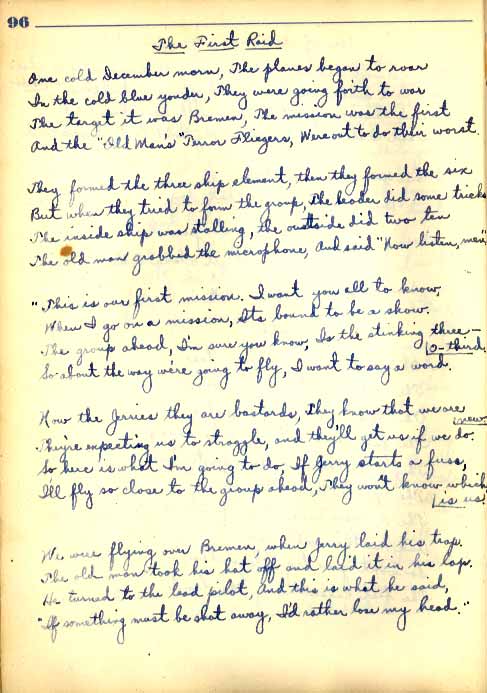 96
The First Raid
One cold December morn, The planes began to roar
In the cold blue yonder, They were going forth to war
The target it was Bremen, The mission was the first
And the "Old Man's" Terror Fliegers, Were out to do their worst.
They formed the three ship element, then they formed the six
But when they tried to form the group, The leader did some tricks
The inside ship was stalling, the outside did two ten
The old man grabbed the microphone, And said "Now listen, men"
"This is our first mission. I want you all to know,
When I go on a mission, Its bound to be a show.
The group ahead, I'm sure you know, Is the stinking three-
o-third.
So about the way we're going to fly, I want to say a word.
Now the Jerries they are bastards, They know that we are
new
They're expecting us to straggle, and they'll get us if we do.
So here is what I'm going to do, If Jerry starts a fuss,
I'll fly so close to the group ahead, They won't know which
is us."
We were flying over Bremen, when Jerry laid his trap.
The old man took his hat off and laid it in his lap.
He turned to the lead pilot, And this is what he said,
"If something must be shot away, I'd rather lose my head."